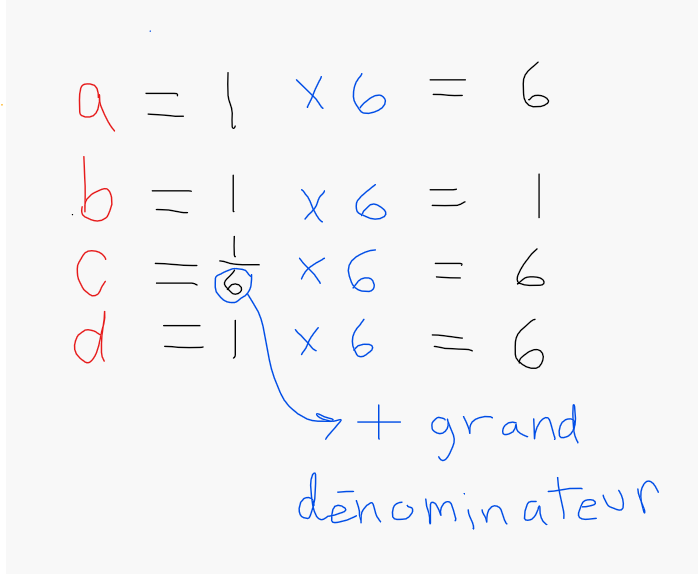 a = 1 × 6 = 6
b = 1 × 6 = 1
c = 1/6 × 6 = 6
d = 1 × 6 = 6
→ + grand
dénominateur